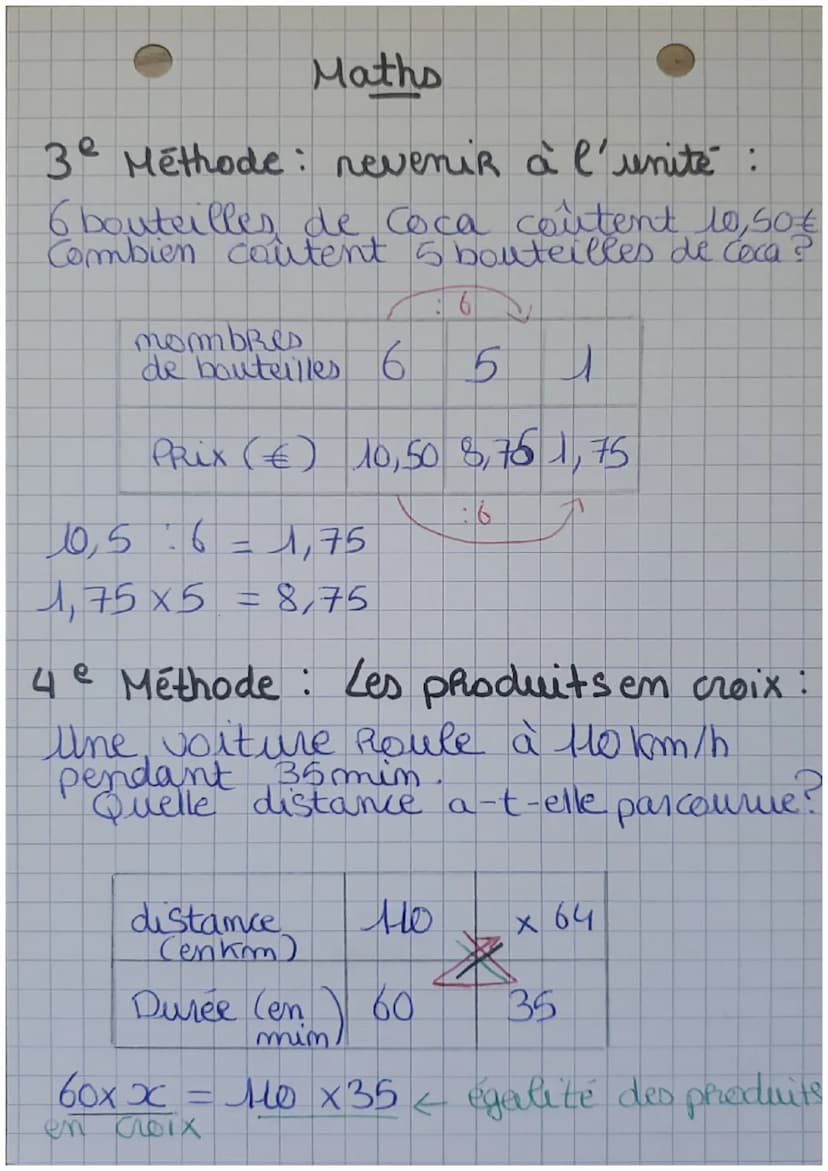 Maths
3e Méthode : revenir à l'unité :
6 bouteilles de Coca coûtent 10,50€
Combien coûtent 5 bouteilles de Coca ?
: 6
nombres
de bouteilles 6 5 1
Prix (€) 10,50 8,75 1,75
:6
10,5 : 6 = 1,75
1,75 x 5 = 8,75
4e Méthode : Les produits en croix :
Une voiture roule à 110 km/h
pendant 35 min.
Quelle distance a-t-elle parcourue ?
distance 110 x 64
(en km)
Durée (en 60 35
min)
60 x x = 110 x 35 ← égalité des produits
en croix